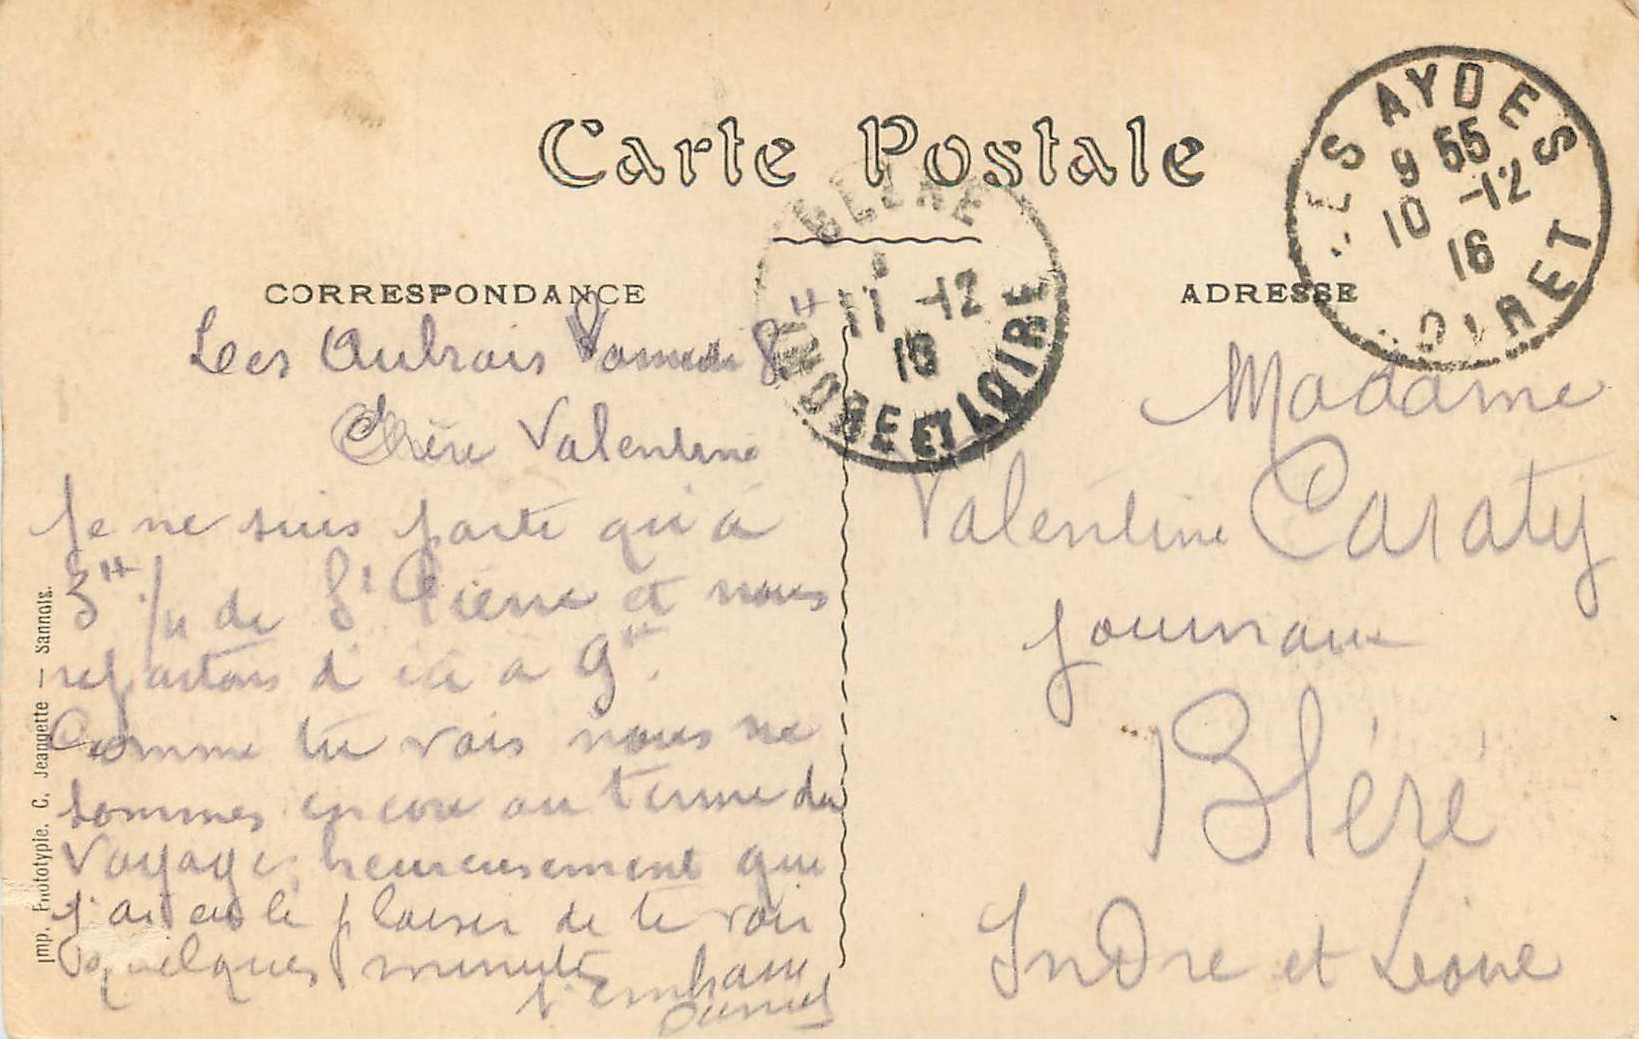 Carte Postale
LES AYDES
9 55
10 -12
16
LOIRET
BLÉRÉ
11 -12
16
INDRE ET LOIRE
CORRESPONDANCE
ADRESSE
Les Aubrais Samedi 8H
Chère Valentine
Je ne suis partie qu'à
3H 1/4 de St Pierre et nous
repartons d'ici à 9H.
Comme tu vois nous ne
sommes encore au terme du
voyage, heureusement que
j'ai eu le plaisir de te voir
quelques minutes
t'embrasse
Madame
Valentine Caraty
Journaux
Bléré
Indre et Loire
Imp. Phototypie. C. Jeangette — Sannois.